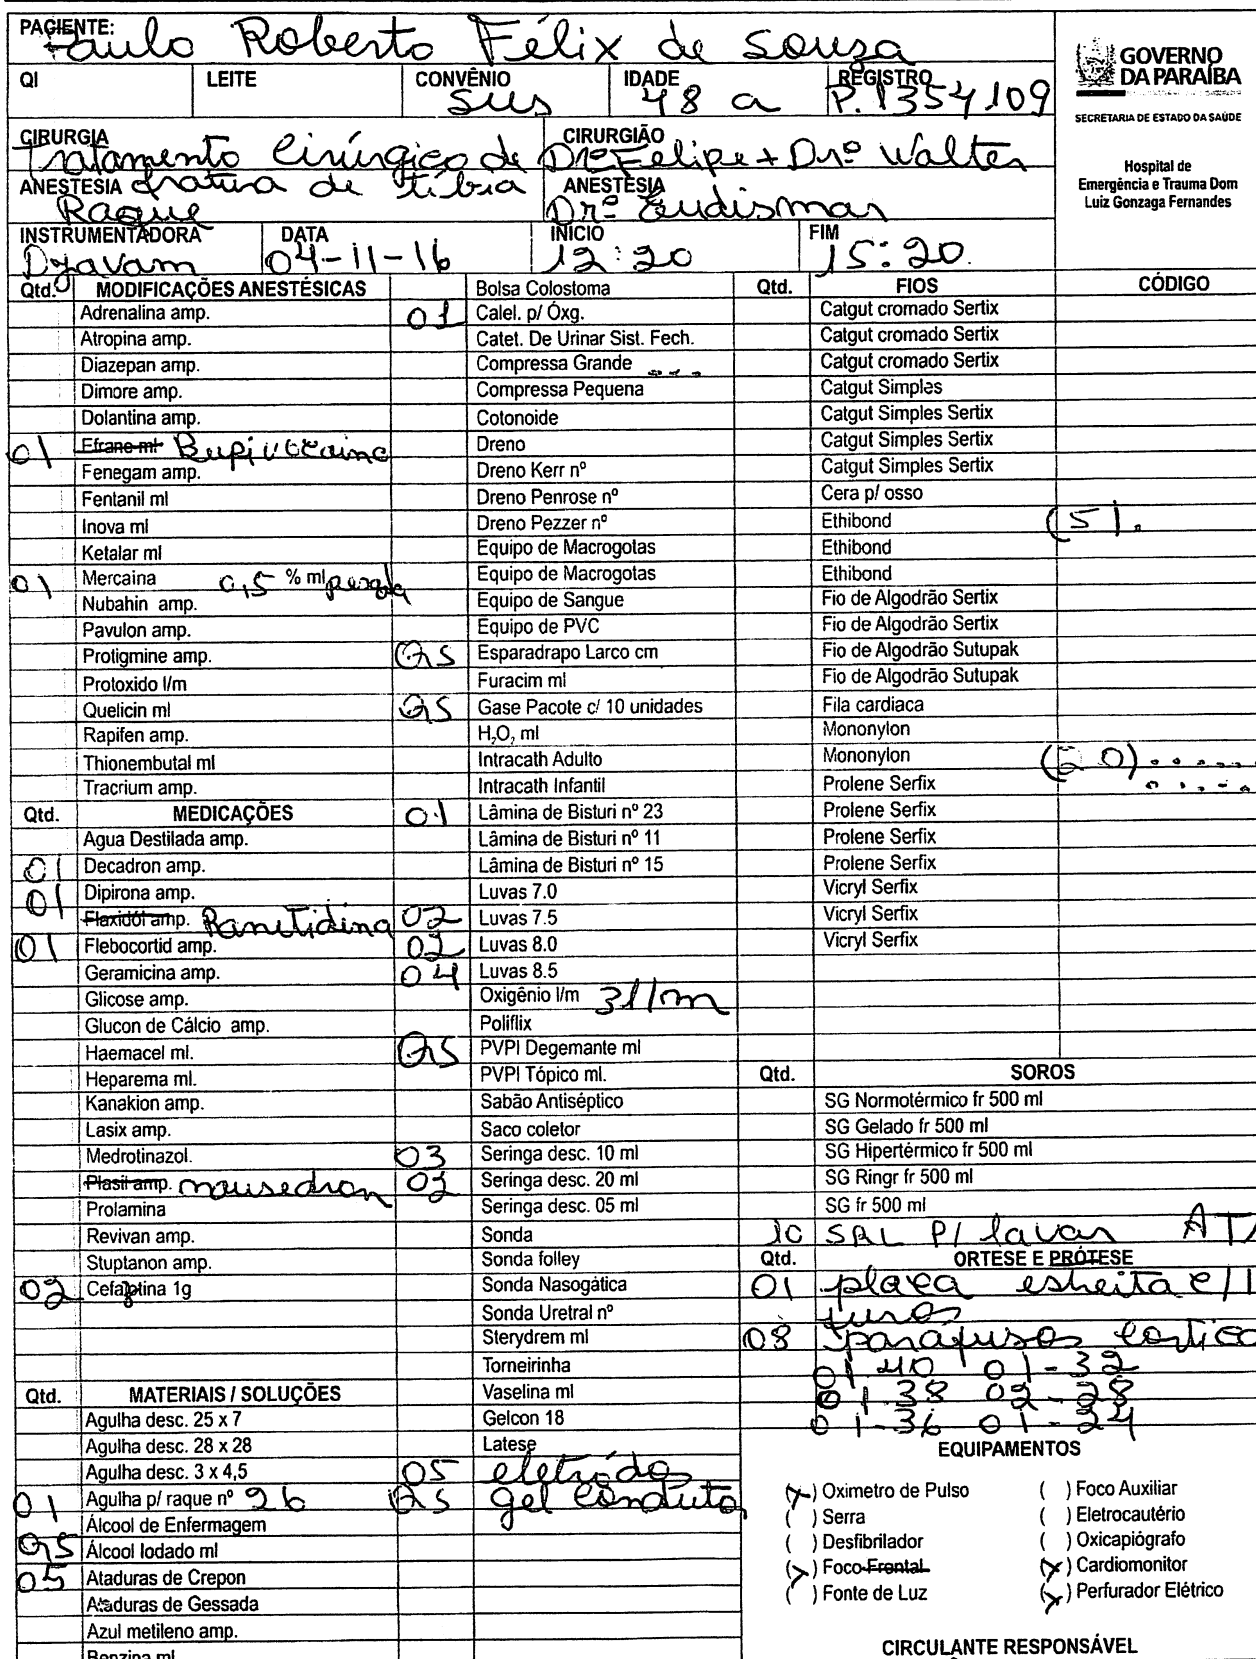 PACIENTE: Paulo Roberto Félix de Souza
GOVERNO
DA PARAÍBA
SECRETARIA DE ESTADO DA SAÚDE
Hospital de
Emergência e Trauma Dom
Luiz Gonzaga Fernandes
QI LEITE CONVÊNIO SUS IDADE 48 a REGISTRO P. 1354109
CIRURGIA Tratamento Cirúrgico de fratura de tíbia
CIRURGIÃO Drº Felipe + Drº Walter
ANESTESIA Raque
ANESTESIA Drº Eudismar
INSTRUMENTADORA Djavam DATA 04-11-16 INICIO 12:20 FIM 15:20
Qtd. MODIFICAÇÕES ANESTÉSICAS
Adrenalina amp.
Atropina amp.
Diazepan amp.
Dimore amp.
Dolantina amp.
01 Efrane ml Bupivacaina
Fenegam amp.
Fentanil ml
Inova ml
Ketalar ml
01 Mercaina 0,5 % ml pesada
Nubahin amp.
Pavulon amp.
Protigmine amp.
Protoxido l/m
Quelicin ml
Rapifen amp.
Thionembutal ml
Tracrium amp.
Qtd. MEDICAÇÕES
Agua Destilada amp.
01 Decadron amp.
01 Dipirona amp.
Flaxidól amp. Ranitidina
01 Flebocortid amp.
Geramicina amp.
Glicose amp.
Glucon de Cálcio amp.
Haemacel ml.
Heparema ml.
Kanakion amp.
Lasix amp.
Medrotinazol.
Plasil amp. nausedron
Prolamina
Revivan amp.
Stuptanon amp.
02 Cefalotina 1g
Qtd. MATERIAIS / SOLUÇÕES
Agulha desc. 25 x 7
Agulha desc. 28 x 28
Agulha desc. 3 x 4,5
01 Agulha p/ raque nº 26
Álcool de Enfermagem
QS Álcool Iodado ml
05 Ataduras de Crepon
Ataduras de Gessada
Azul metileno amp.
Benzina ml
Bolsa Colostoma
01 Calel. p/ Óxg.
Catet. De Urinar Sist. Fech.
Compressa Grande
Compressa Pequena
Cotonoide
Dreno
Dreno Kerr nº
Dreno Penrose nº
Dreno Pezzer nº
Equipo de Macrogotas
Equipo de Macrogotas
Equipo de Sangue
Equipo de PVC
QS Esparadrapo Larco cm
Furacim ml
QS Gase Pacote c/ 10 unidades
H2O2 ml
Intracath Adulto
Intracath Infantil
01 Lâmina de Bisturi nº 23
Lâmina de Bisturi nº 11
Lâmina de Bisturi nº 15
Luvas 7.0
02 Luvas 7.5
02 Luvas 8.0
04 Luvas 8.5
Oxigênio l/m 3l/m
Poliflix
QS PVPI Degemante ml
PVPI Tópico ml.
Sabão Antiséptico
Saco coletor
03 Seringa desc. 10 ml
02 Seringa desc. 20 ml
Seringa desc. 05 ml
Sonda
Sonda folley
Sonda Nasogática
Sonda Uretral nº
Sterydrem ml
Torneirinha
Vaselina ml
Gelcon 18
Latese
05 eletrodos
QS gel condutor
Qtd. FIOS CÓDIGO
Catgut cromado Sertix
Catgut cromado Sertix
Catgut cromado Sertix
Catgut Simples
Catgut Simples Sertix
Catgut Simples Sertix
Catgut Simples Sertix
Cera p/ osso
Ethibond (5).
Ethibond
Ethibond
Fio de Algodrão Sertix
Fio de Algodrão Sertix
Fio de Algodrão Sutupak
Fio de Algodrão Sutupak
Fila cardiaca
Mononylon
Mononylon (20)
Prolene Serfix
Prolene Serfix
Prolene Serfix
Prolene Serfix
Vicryl Serfix
Vicryl Serfix
Vicryl Serfix
Qtd. SOROS
SG Normotérmico fr 500 ml
SG Gelado fr 500 ml
SG Hipertérmico fr 500 ml
SG Ringr fr 500 ml
SG fr 500 ml
10 SRL P/ lavar
Qtd. ORTESE E PRÓTESE
01 placa estreita c/ 1
furos
08 parafusos cortica
01-40 01-32
01-38 02-28
01-36 01-24
EQUIPAMENTOS
(x) Oximetro de Pulso ( ) Foco Auxiliar
( ) Serra ( ) Eletrocautério
( ) Desfibrilador ( ) Oxicapiógrafo
(x) Foco Frental (x) Cardiomonitor
( ) Fonte de Luz (x) Perfurador Elétrico
CIRCULANTE RESPONSÁVEL